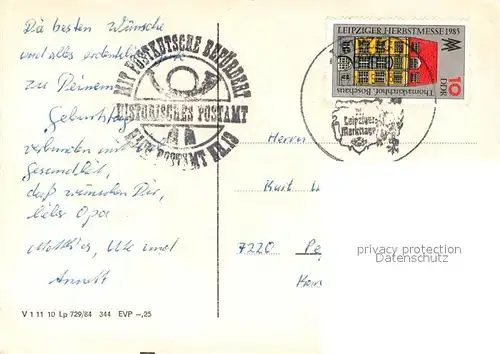 Die besten Wünsche
und alles erdenkliche
zu Deinem
Geburtstag
verbunden mit viel
Gesundheit,
daß wünschen Dir,
lieber Opa
Matthias, Ute und
Annett
V 1 11 10 Lp 729/84 344 EVP –,25
MIT POSTKUTSCHE BEFÖRDERT
HISTORISCHES POSTAMT
POSTAMT
LEIPZIGER HERBSTMESSE 1985
Thomaskirchhof, Bosehaus
DDR
10
Leipziger
Markttage
Herrn
Kurt
7220 Pe
privacy protection
Datenschutz